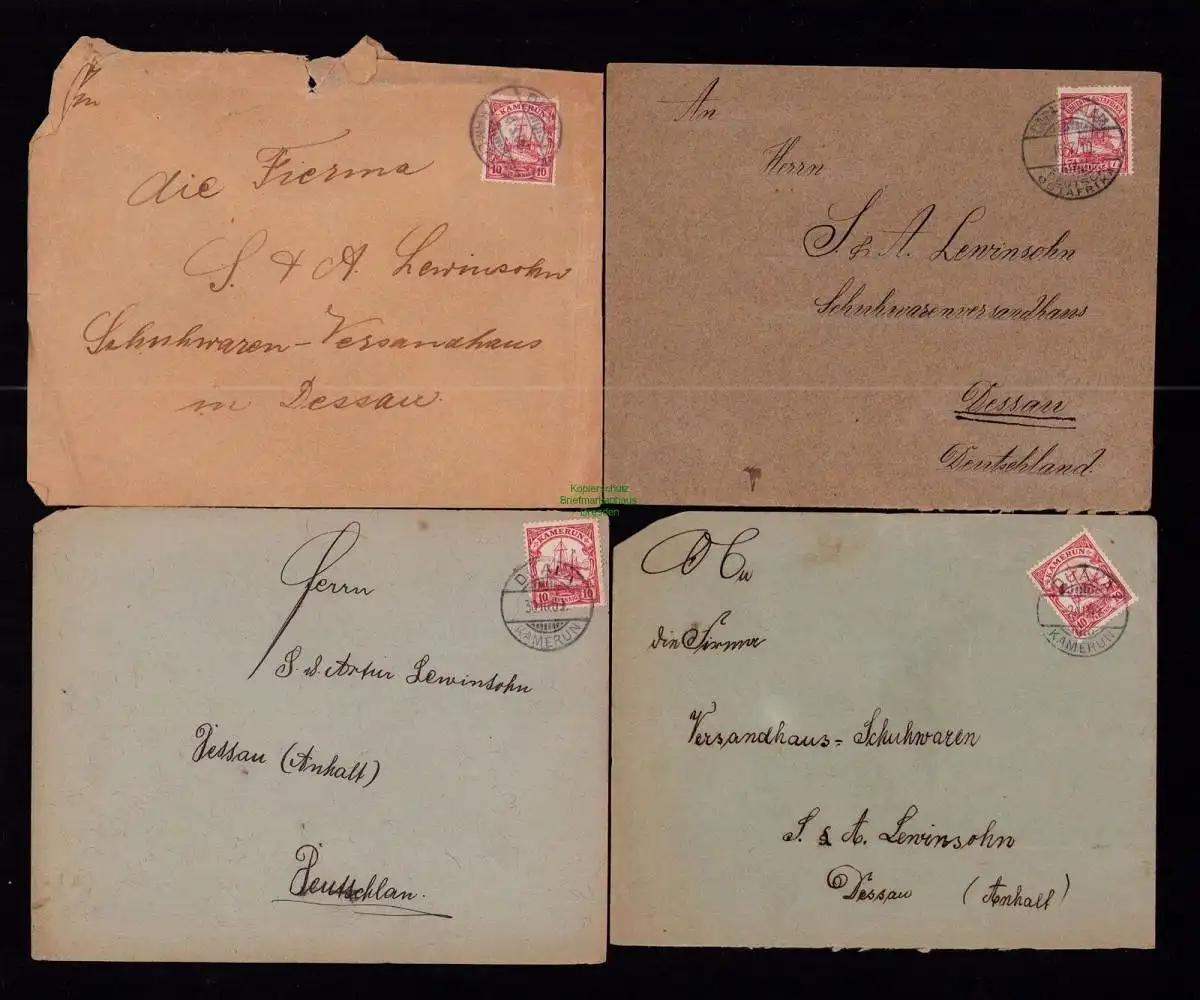 An
die Fierma
S. & A. Lewinsohn
Schuhwaren-Versandhaus
in Dessau.
KAMERUN
10 10
An
Herrn
S. & A. Lewinsohn
Schuhwarenversandhaus
Dessau
Deutschland.
OSTAFRIKA
Kopierschutz
Briefmarkenhaus
Dresden
Herrn
S. u. Artur Lewinsohn
Dessau (Anhalt)
Deutschlan.
KAMERUN
10 10
DUALA
30.10.09.
KAMERUN
die Firma
Versandhaus= Schuhwaren
S. & A. Lewinsohn
Dessau (Anhalt)
KAMERUN
10
DUALA
KAMERUN